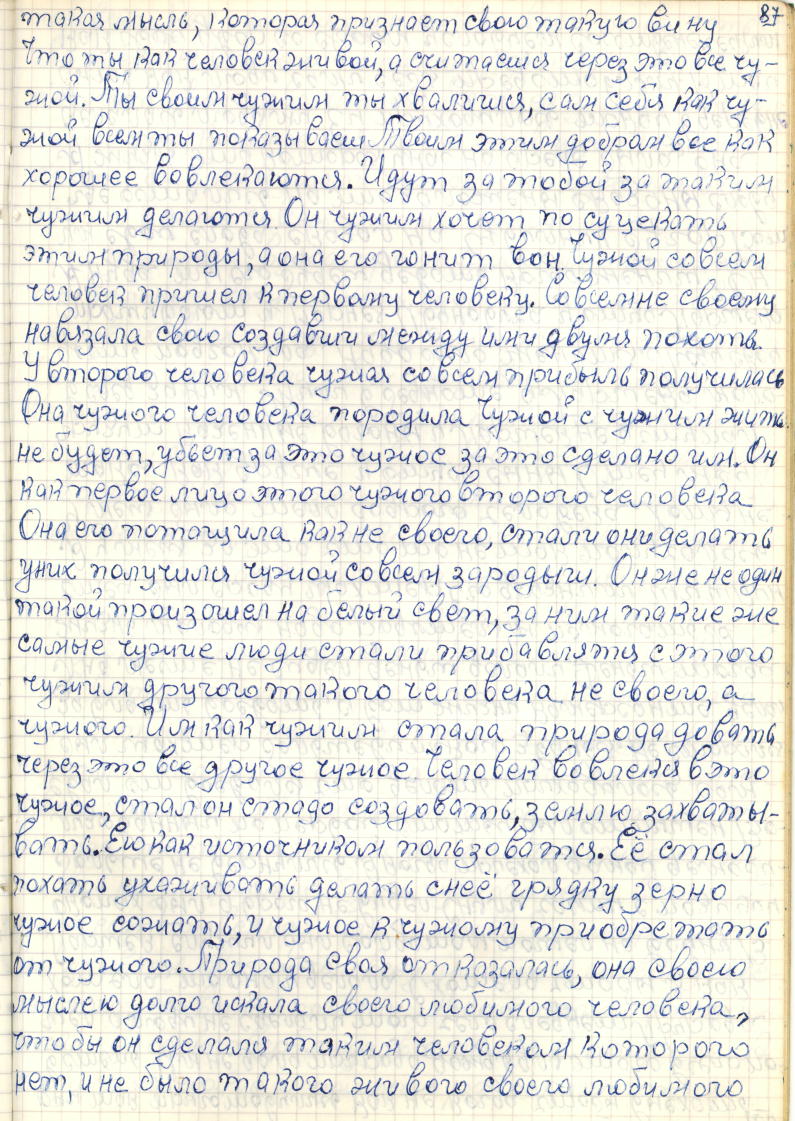 87
такая мысль, которая признает свою такую вину
Что ты как человек живой, а считаешся через это все чу-
жой. Ты своим чужим ты хвалишся, сам себя как чу-
жой всем ты показываеш Твоим этим добрам все как
хорошее вовлекаются. Идут за тобой за таким
чужим делаются. Он чужим хочет по
этим природы, а она его гонит вон Чужой совсем
человек пришел к первому человеку. Совсем не своему
навязала свою создавши между ими двумя похоть.
У второго человека чужая совсем прибыль получилась
Она чужого человека породила Чужой с чужим жить
не будет, убьет за это чужое за это сделано им. Он
как первое лицо этого чужого второго человека
Она его потощила как не своего, стали они делать
у них получился чужой совсем зародыш. Он же не один
такой произошел на белый свет, за ним такие же
самые чужие люди стали прибавлятся с этого
чужим другого такого человека не своего, а
чужого. Им как чужим стала природа довать
через это все другое чужое. Человек вовлекся в это
чужое, стал он стадо создовать, землю захваты-
вать. Ею как источником пользоватся. Её стал
похать ухаживать делать с неё грядку зерно
чужое сожать, и чужое к чужому приобретать
от чужого. Природа своя отказалась, она своею
мыслею долго искала своего любимого человека,
чтобы он сделался таким человеком которого
нет, и не было такого живого своего любимого